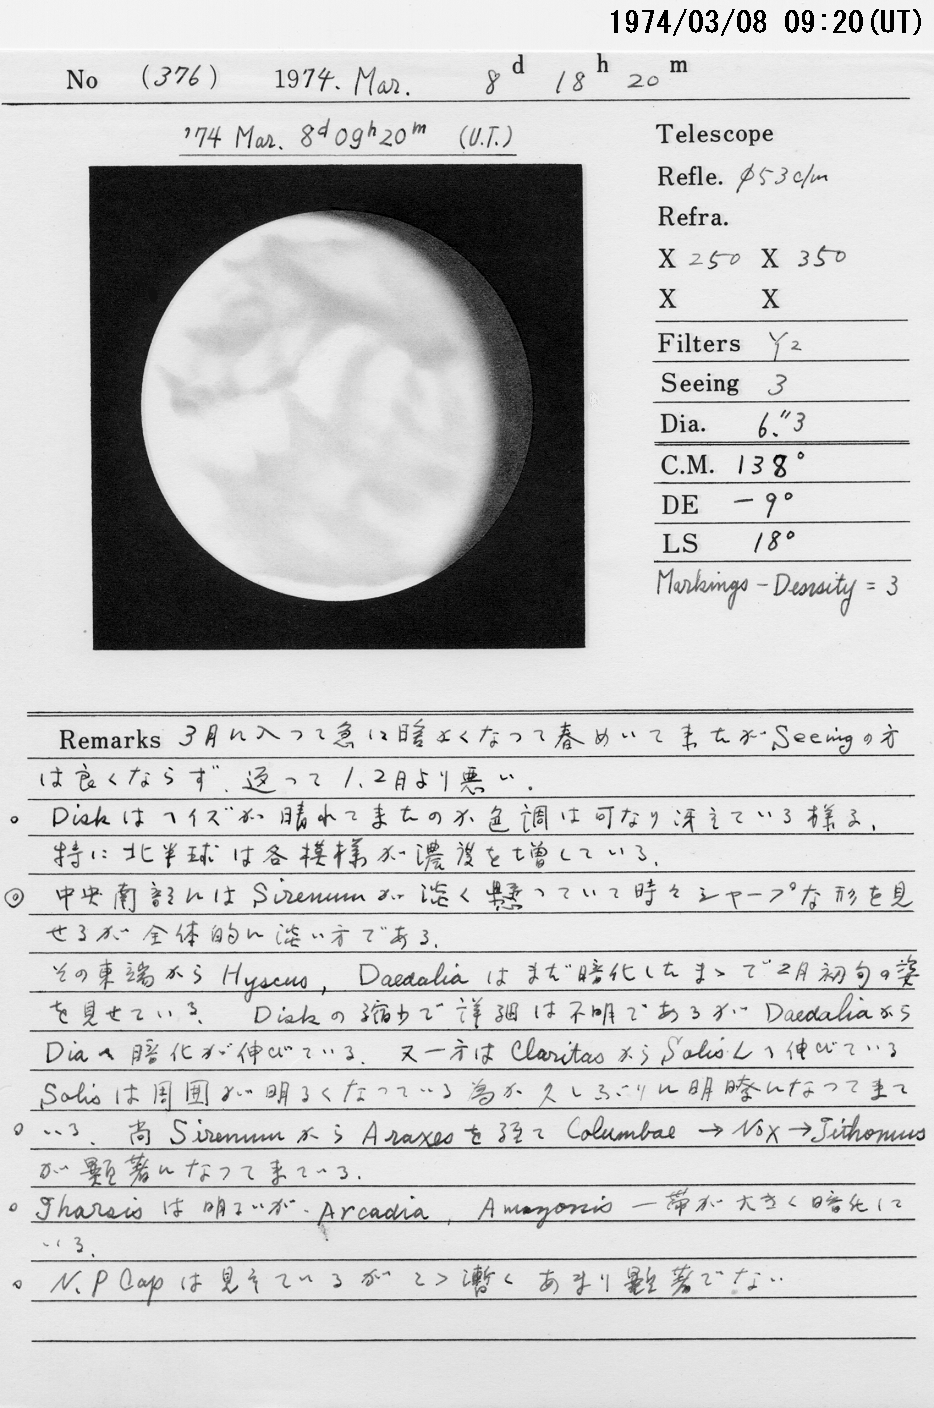 1974/03/08 09:20(UT)
No (376) 1974. Mar. 8d 18h 20m
'74 Mar. 8d 09h 20m (U.T.)
Telescope
Refle. φ53c/m
Refra.
X 250 X 350
X X
Filters Y2
Seeing 3
Dia. 6."3
C.M. 138°
DE -9°
LS 18°
Markings - Density = 3
Remarks 3月に入って急に暖かくなって春めいて来たがSeeingの方
は良くならず、返って1、2月より悪い。
○ Diskはヘイズが晴れてきたのか色調は可なり冴えている様る。
特に北半球は各模様が濃度を増している。
◎ 中央南部にはSirenumが淡く懸っていて時々シャープな形を見
せるが全体的に淡い方である。
その東端からHyscus, Daedaliaはまだ暗化したまゝで2月初旬の姿
を見せている。Diskの縮小で詳細は不明であるがDaedaliaから
Diaへ暗化が伸びている。又一方はClaritasからSolis Lへ伸びている
Solisは周囲が明るくなっている為か久しぶりに明瞭になって来て
○ いる。尚SirenumからAraxesを経てColumbae→Nox→Tithonius
が顕著になって来ている。
○ Tharsisは明るいが、Arcadia, Amazonis一帯が大きく暗化して
いる。
○ N.P Capは見えているが あまり顕著でない